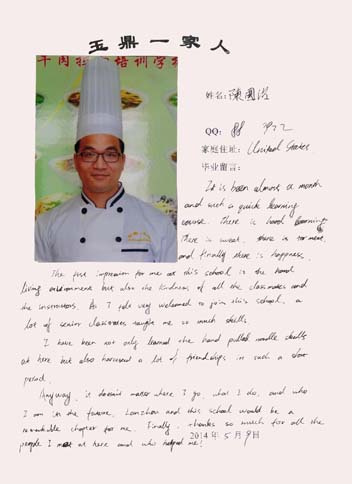 玉鼎一家人
牛肉拉面培训学校
姓名: 陳國浩
QQ: 88
家庭住址: United States
毕业留言:
It is been almost a month
and such a quick learning
course. there is hard learning
there is sweat. there is torment.
and finally there is happness.
The first impression for me at this school is the hard
living environment but also the kindness of all the classmates and
the instructors. As I felt very welcomed to join this school. a
lot of senior classmates taught me so much skills.
I have been not only learned the hand pulled noodle skills
at here but also harvested a lot of friendships in such a short
period.
Anyway, it doesn't matter where I go, what I do, and who
I am in the future. Lanzhou and this school would be a
remarkable chapter for me. Finally, thanks so much for all the
people I met at here and who helped me!
2014年5月9日